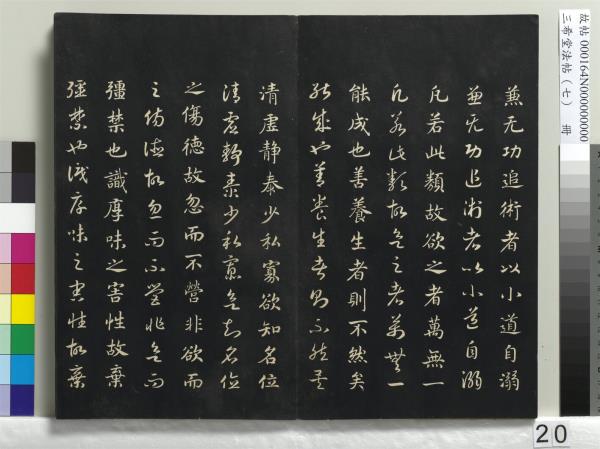 故帖 000164N000000000
三希堂法帖（七） 冊
兼无功追術者以小道自溺
兼无功追術者以小道自溺
凡若此類故欲之者萬無一
凡若此類故欲之者萬無一
能成也善養生者則不然矣
能成也善養生者則不然矣
清虛静泰少私寡欲知名位
清虛静泰少私寡欲知名位
之傷德故忽而不營非欲而
之傷德故忽而不營非欲而
彊禁也識厚味之害性故棄
彊禁也識厚味之害性故棄
20